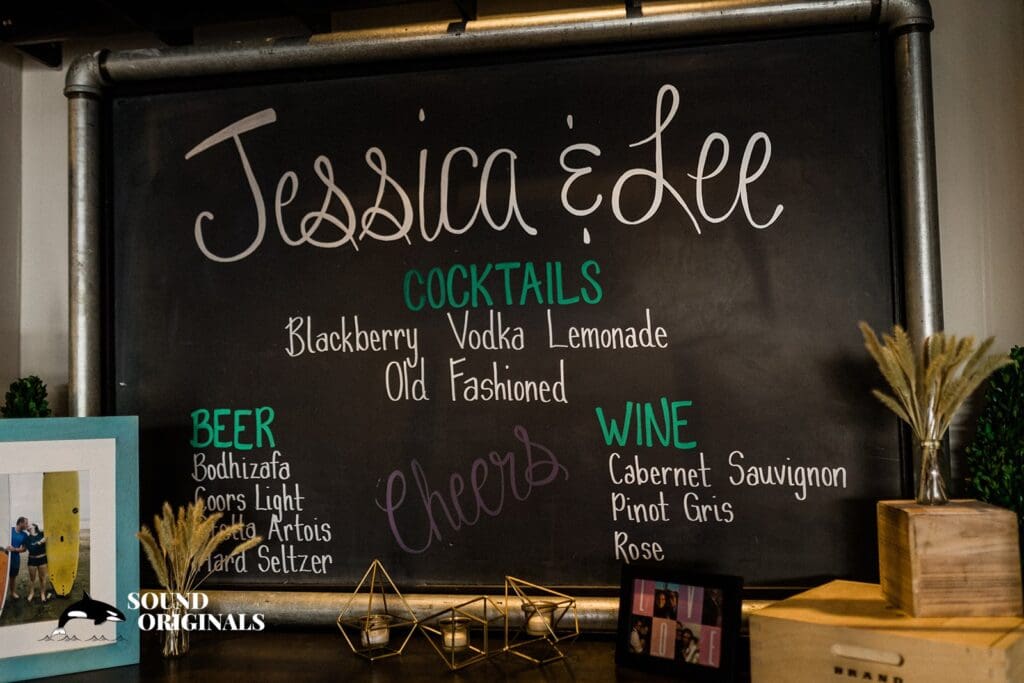 Jessica & Lee
COCKTAILS
Blackberry Vodka Lemonade
Old Fashioned
BEER
Bodhizafa
Coors Light
Artois
Hard Seltzer
Cheers
WINE
Cabernet Sauvignon
Pinot Gris
Rose
SOUND
ORIGINALS
BRAND